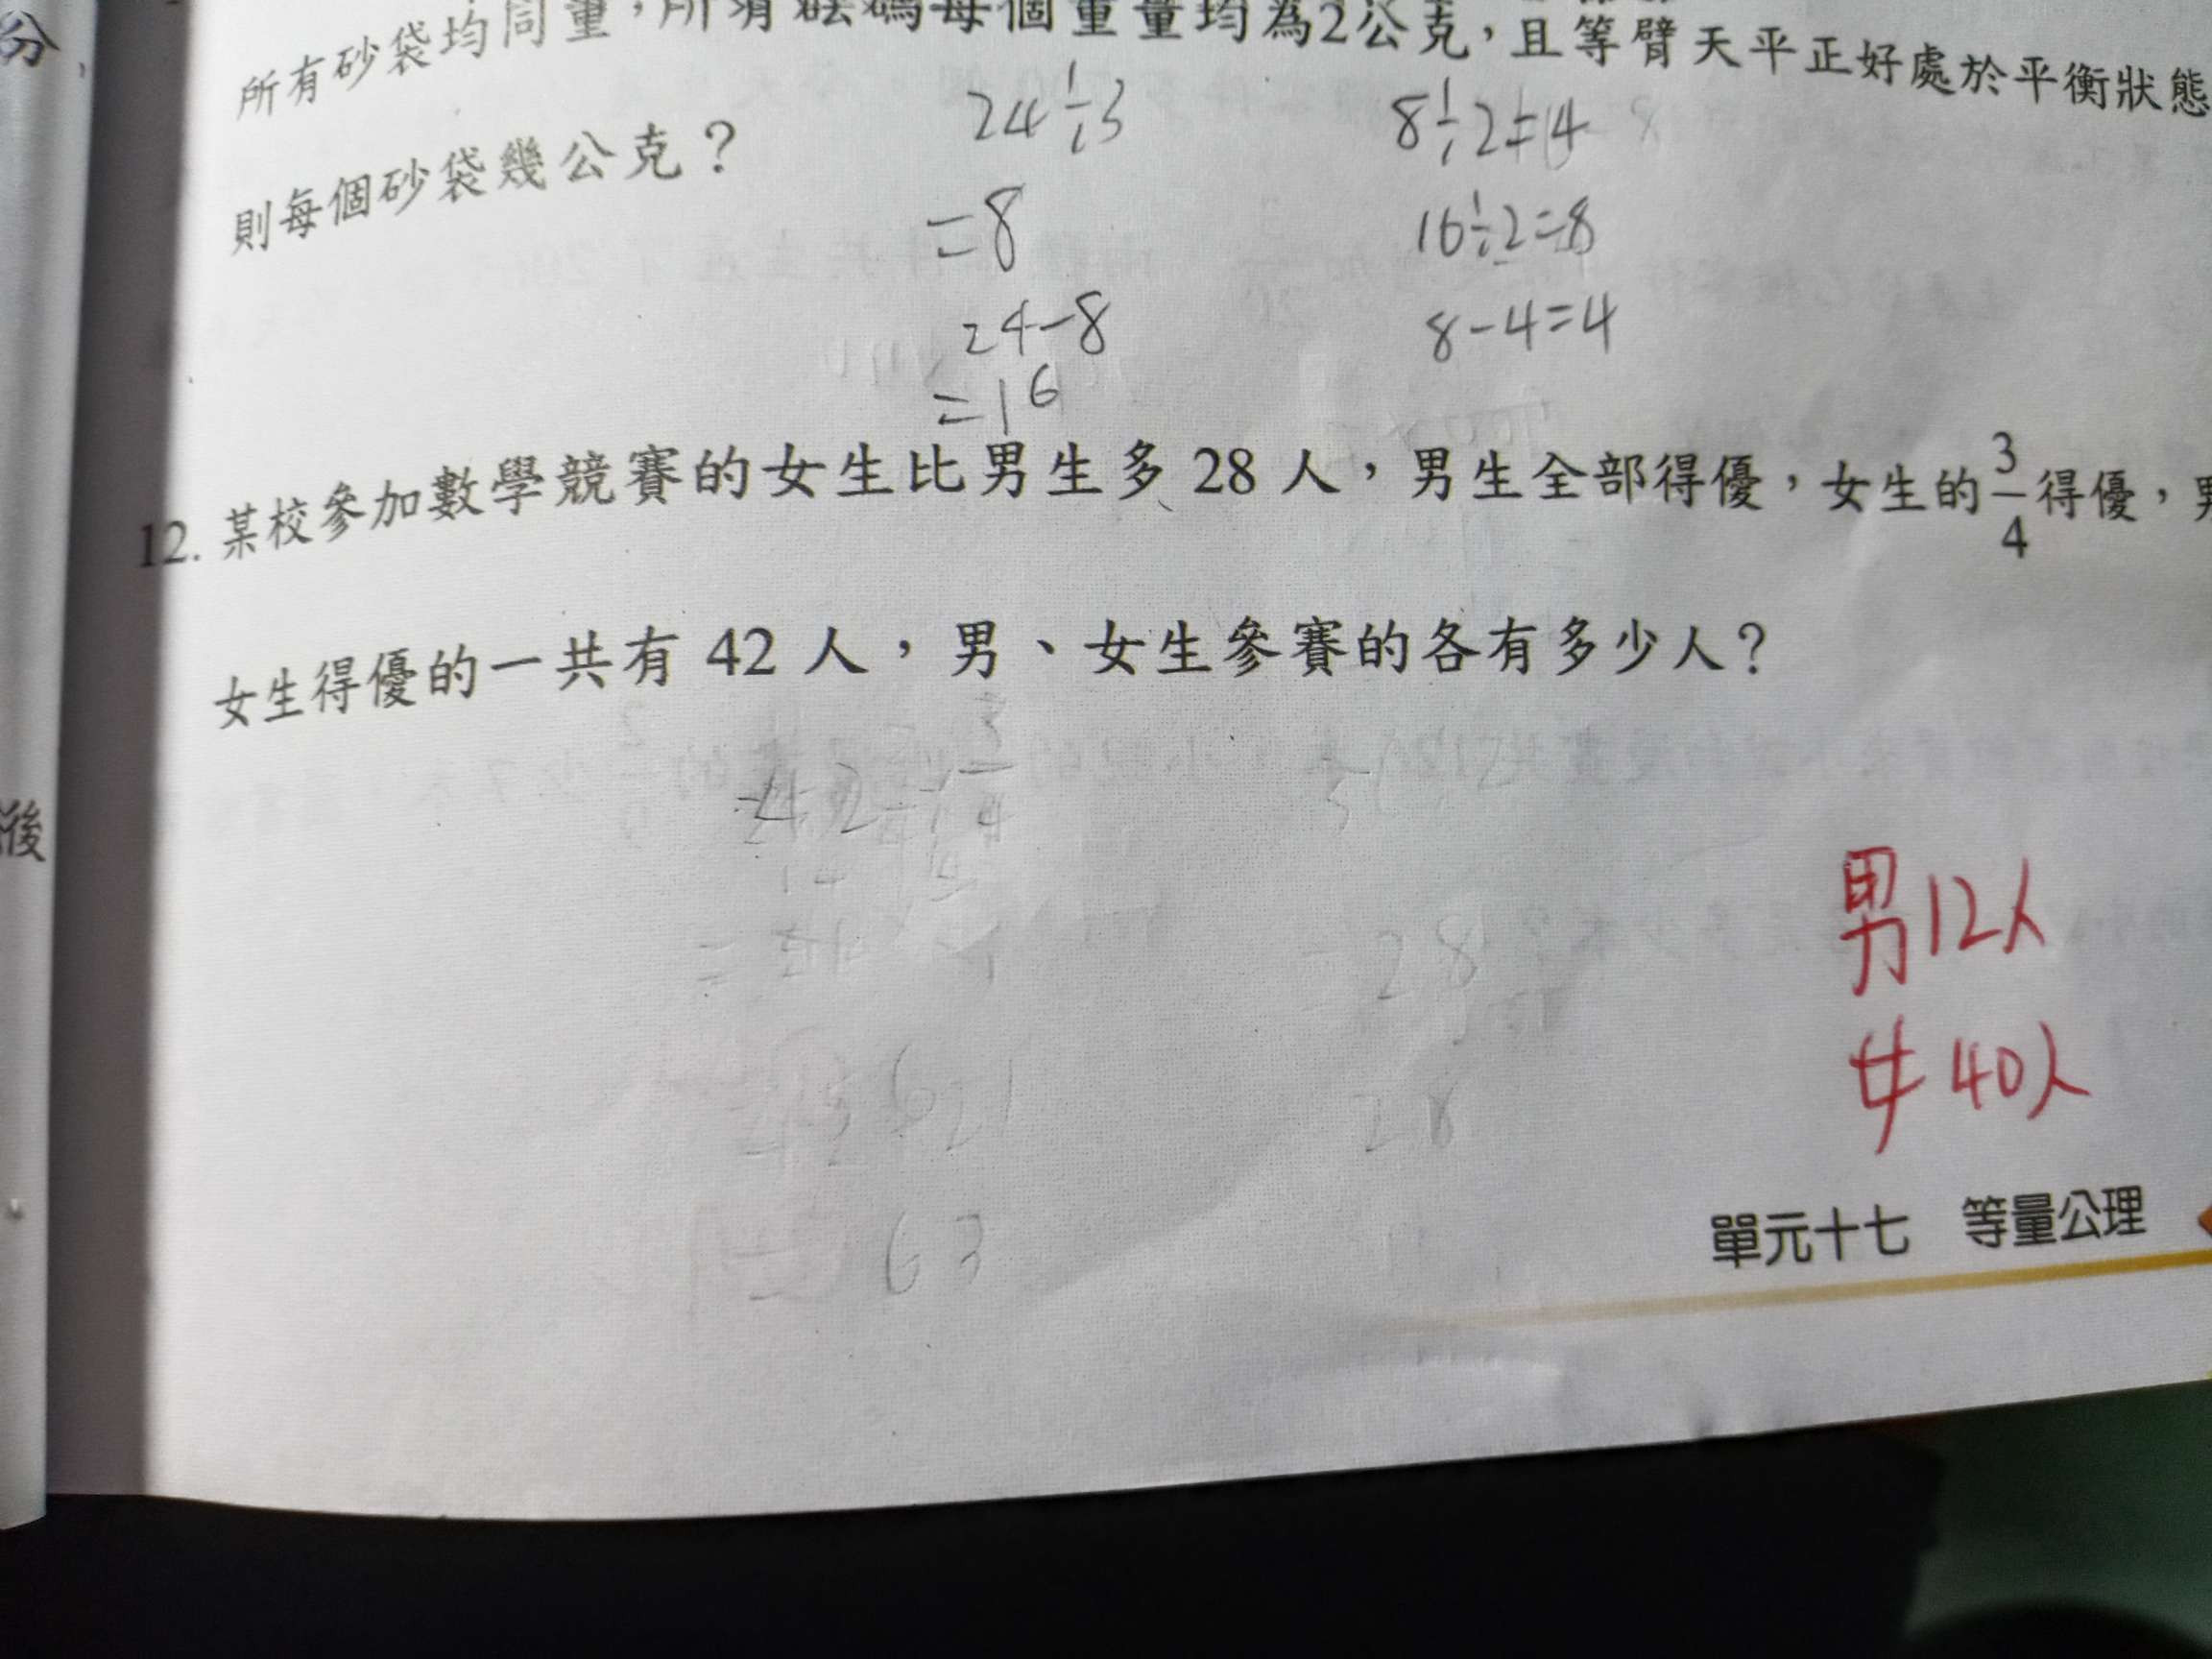 份，
所有砂袋均同重，所有砝碼每個重量均為2公克，且等臂天平正好處於平衡狀態
則每個砂袋幾公克？
24÷3
=8
24-8
=16
8÷2=4
16÷2=8
8-4=4
12. 某校參加數學競賽的女生比男生多 28 人，男生全部得優，女生的3/4得優，男
女生得優的一共有 42 人，男、女生參賽的各有多少人？
42÷3/4
28
28
63
男12人
女40人
後
單元十七 等量公理